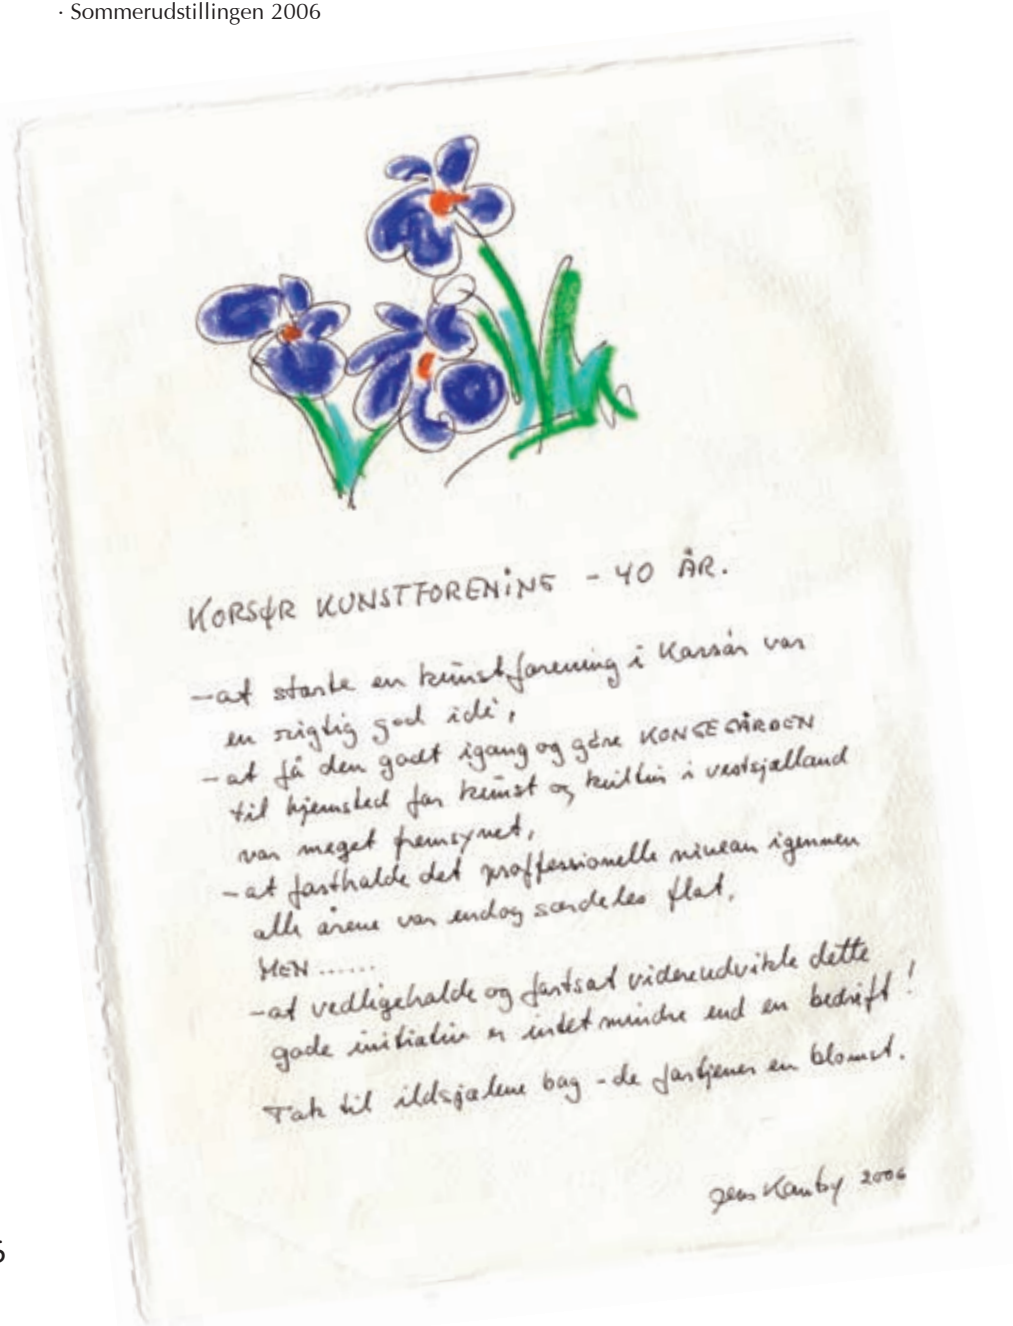 · Sommerudstillingen 2006
KORSØR KUNSTFORENING - 40 ÅR.
- at starte en kunstforening i Korsør var
en rigtig god idé,
- at få den godt igang og gøre KONGEGÅRDEN
til hjemsted for kunst og kultur i vestsjælland
var meget fremsynet,
- at fastholde det proffessionelle niveau igennem
alle årene var endog særdeles flot,
MEN ......
- at vedligeholde og fortsat videreudvikle dette
gode initiativ er intet mindre end en bedrift!
Tak til ildsjælene bag - de fortjener en blomst.
Jens 2006